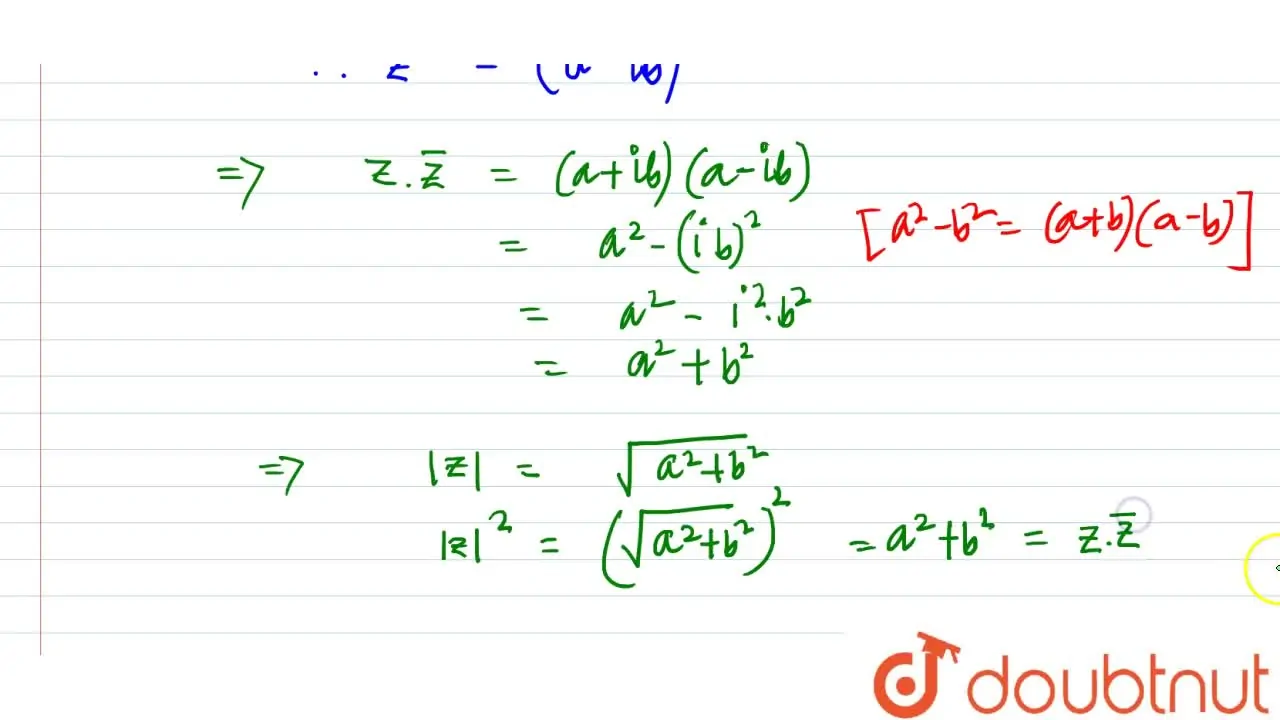 ⇒ z.z̄ = (a+ib)(a-ib)
= a² - (ib)² [a² - b² = (a+b)(a-b)]
= a² - i².b²
= a² + b²
⇒ |z| = √(a²+b²)
|z|² = (√(a²+b²))² = a²+b² = z.z̄
doubtnut